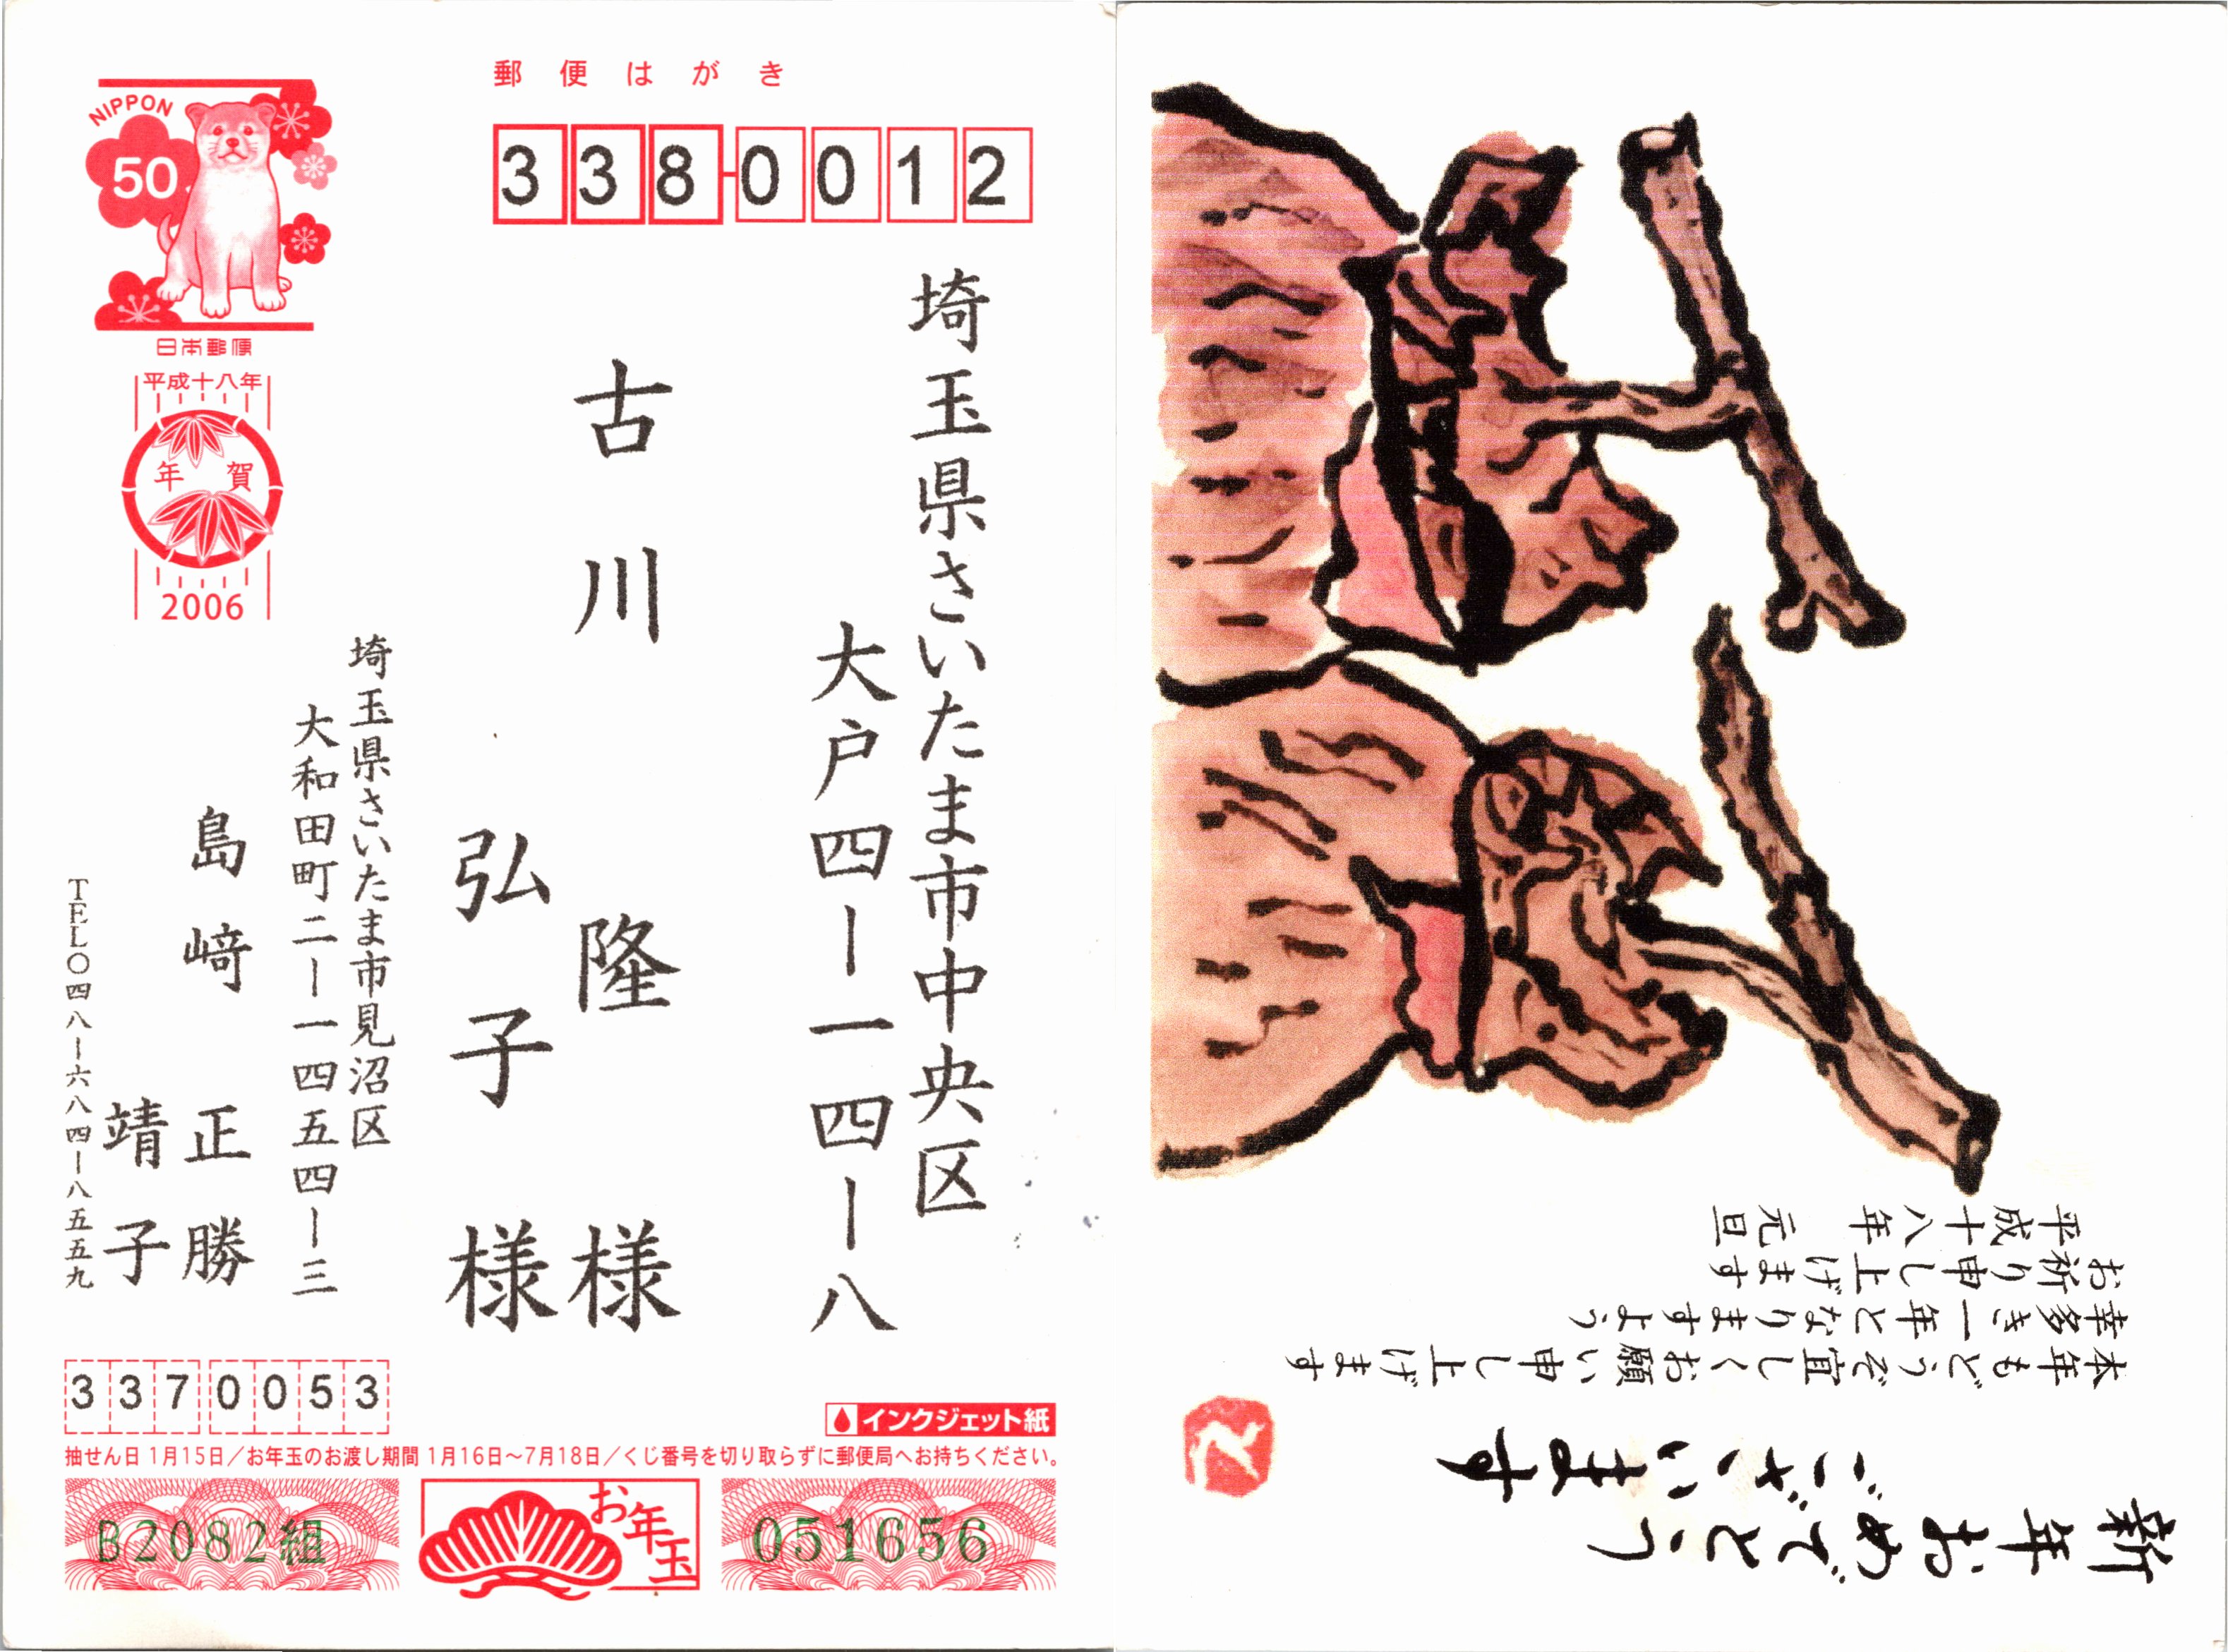 郵便はがき
NIPPON
50
日本郵便
平成十八年
年賀
2006
338-0012
埼玉県さいたま市中央区
大戸四ー一四ー八
古川 隆 様
弘子 様
埼玉県さいたま市見沼区
大和田町二ー一四五四ー三
島﨑 正勝
靖子
TEL〇四八ー六八四ー八五五九
3370053
インクジェット紙
抽せん日 1月15日／お年玉のお渡し期間 1月16日～7月18日／くじ番号を切り取らずに郵便局へお持ちください。
B2082組
お年玉
051656
新年おめでとう
ございます
本年もどうぞ宜しくお願い申し上げます
幸多き一年となりますよう
お祈り申し上げます
平成十八年 元旦